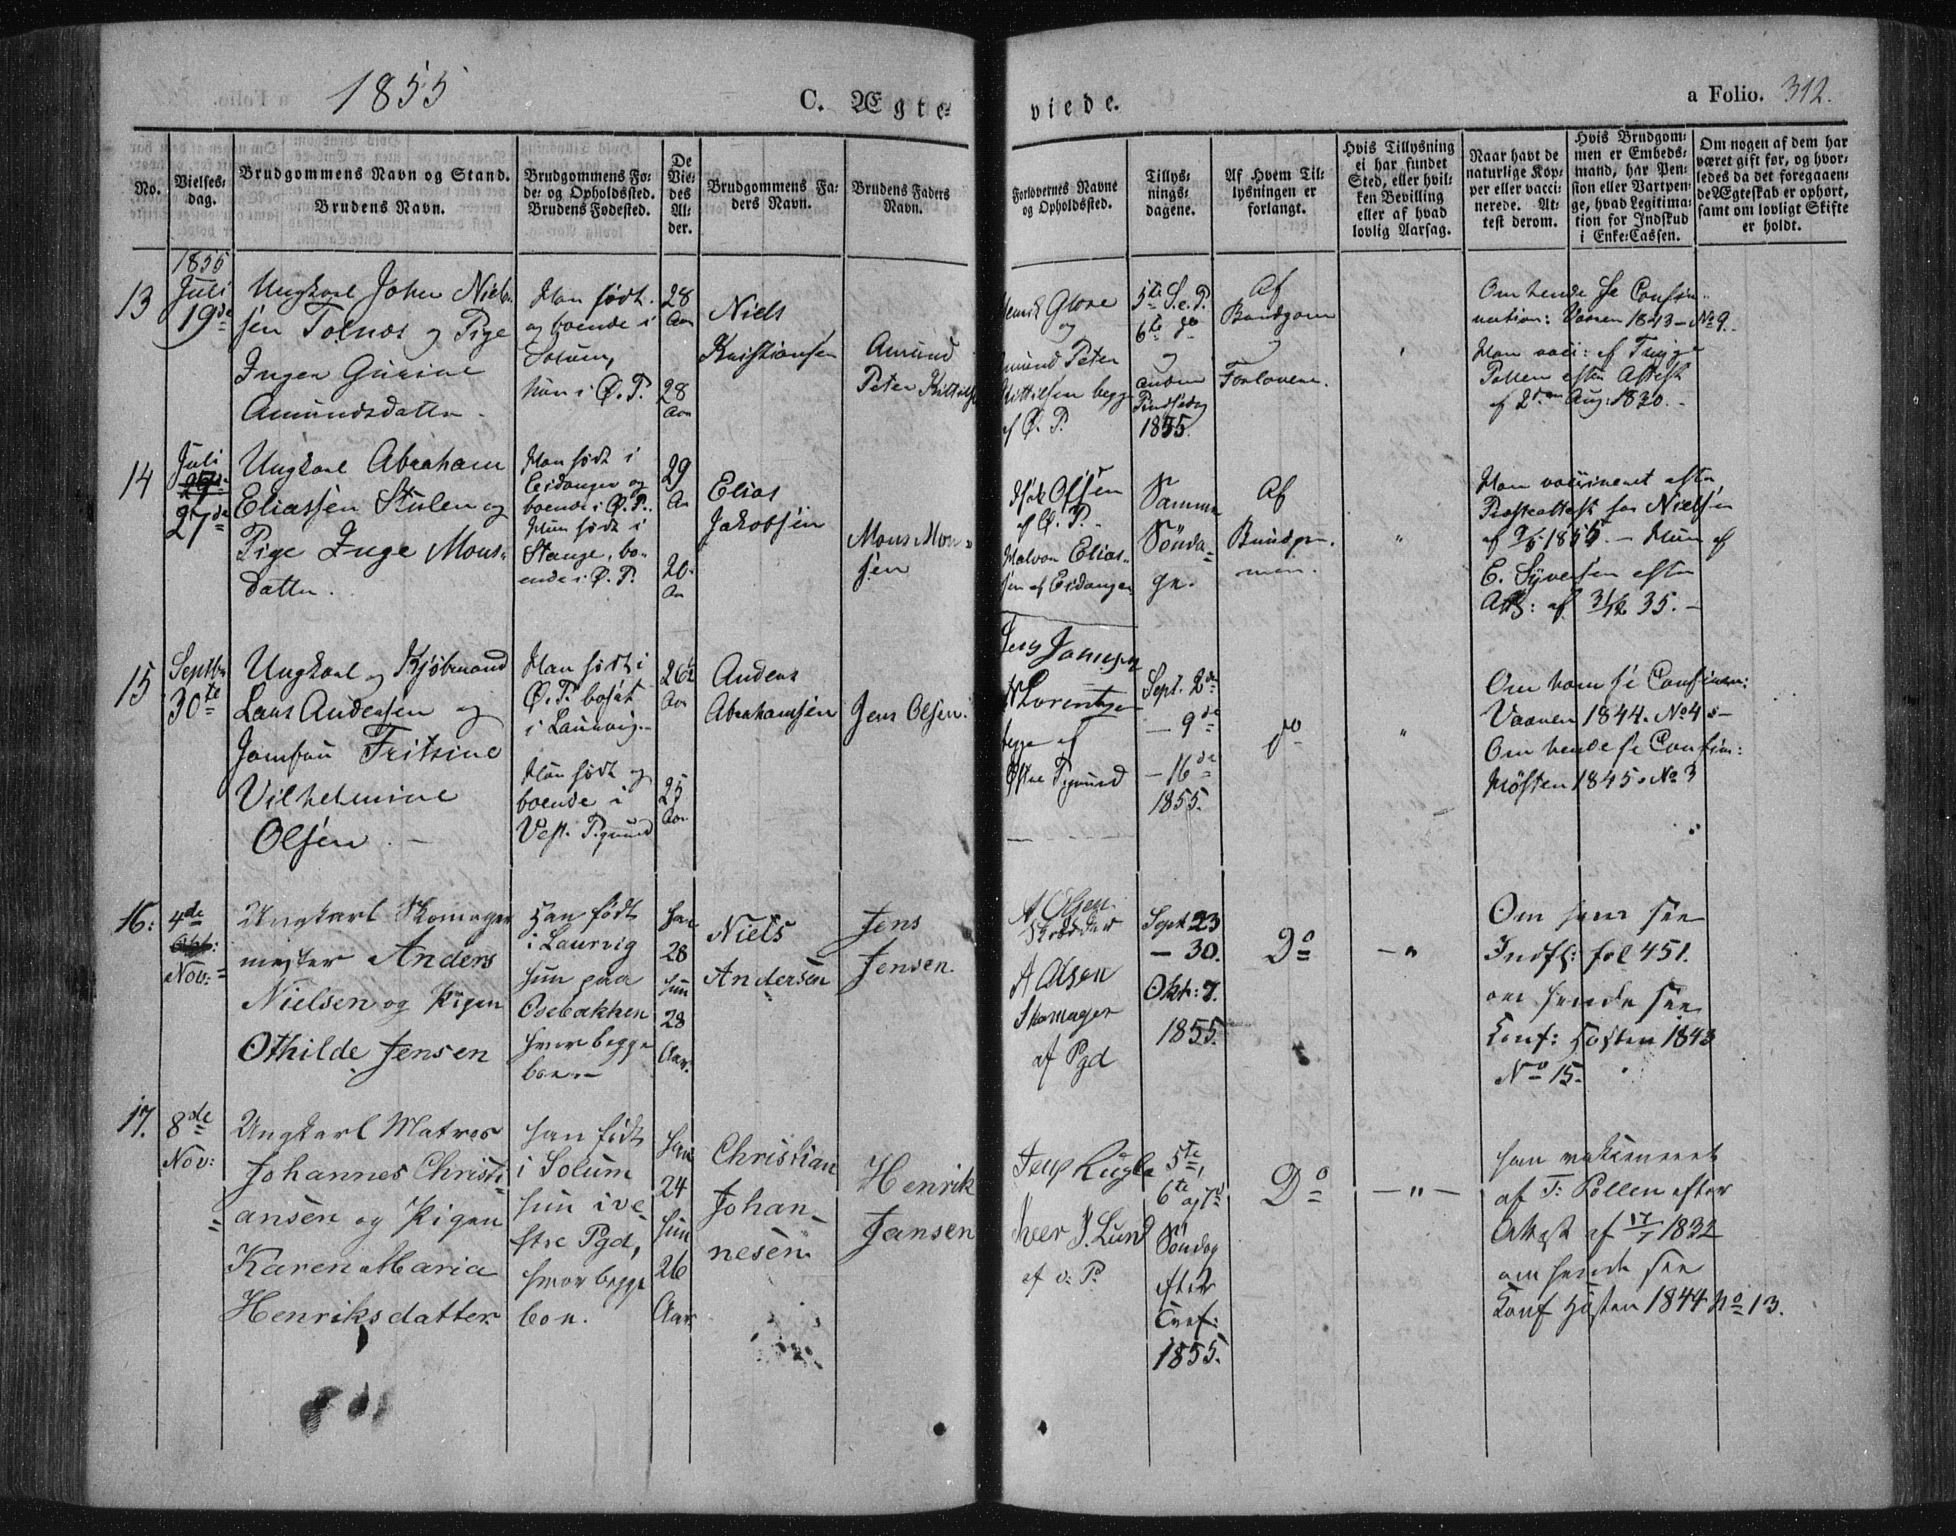 1855
C. Ægte-
viede.
a Folio. 312.
No.
Vielses-
dag.
Brudgommens Navn og Stand.
Brudens Navn.
Brudgommens Fø-
de- og Opholdssted.
Brudens Fødested.
De
Vie-
des
Al-
der.
Brudgommens Fa-
ders Navn.
Brudens Faders
Navn.
Forlovernes Navne
og Opholdssted.
Tillys-
nings-
dagene.
Af Hvem Til-
lysningen er
forlangt.
Hvis Tillysning
ei har fundet
Sted, eller hvil-
ken Bevilling
eller af hvad
lovlig Aarsag.
Naar havt de
naturlige Kop-
per eller vacci-
nerede. At-
test derom.
Hvis Brudgom-
men er Embeds-
mand, har Pen-
sion eller Vartpen-
ge, hvad Legitima-
tion for Indskud
i Enke-Cassen.
Om nogen af dem har
været gift før, og hvor-
ledes da det foregaaen-
de Ægteskab er ophørt,
samt om lovligt Skifte
er holdt.
13
1855
Juli
19de
Ungkarl Johan Niel-
sen Tolnæs og Pige
Inger Gurine
Amundsdatter
Han født
og boende i
Solum,
hun i Ø. P.
28
Aar
28
Aar
Niels
Kristiansen
Amund
Peter Kittilse
Henrik
og
Amund Peter
Kittilsen begge
af Ø. P.
5te S. e. P.
6te do
og
anden
Pindsedag
1855.
Af
Brudgom
og
Forlovere.
Om hende se Confir-
mation: Vaaren 1843 - No 9.
Han vacc: af
Pollen efter Attest
af 2den Aug: 1830.
14
Juli
27de
Ungkarl Abraham
Eliassen Stulen og
Pige Inge Mons-
datter.
Han født i
Eidanger og
boende i Ø. P.
Hun født i
Stange, bo-
ende i Ø. P.
29
Aar
26
Aar
Elias
Jakobsen
Mons Mon-
sen
Olsen
af Ø. P.
Halvor Elias-
sen af Eidanger
Samme
Sönda-
ge.
Af
Brudgom-
men.
"
Han vaccineret efter
Præsteattest fra Nielsen
af 1855. - Hun af
E. Syvertsen efter
Att: af 35. -
15
Septbr
30te
Ungkarl og Kjøbmand
Lars Andersen og
Jomfru Fritzine
Vilhelmine
Olsen
Han født i
Ø. P. bosat
i Laurvig.
Hun født og
boende i
Vest. Pgrund
26½
Aar
25
Aar
Anders
Abrahamsen
Jens Olsen.
Jens Jansen
Lorentzen
begge af
Østre Pgrund
Sept. 2de
- 9de
- 16de
1855.
do
"
Om ham se Confirm:
Vaaren 1844. No 4
Om hende se Confirm:
Høsten 1845. No 3
16.
4de
Nov:
Ungkarl Skomager
mester Anders
Nielsen og Pigen
Othilde Jensen
Han født
i Laurvig
hun paa
Osebakken
hvor begge
boe
Han
28
hun
28
Aar.
Niels
Andersen
Jens
Jensen.
A Olsen
Skrædder
A Olsen
Skomager
af Pgd
Sept 23
- 30.
Okt: 7.
1855.
Do
- "
Om ham see
Indfl: fol 451.
om hende see
Conf: Høsten 1843
No 15.
17.
8de
Nov:
Ungkarl Matros
Johannes Christi-
ansen og Pigen
Karen Maria
Henriksdatter
Han født
i Solum
hun i ve-
stre Pgd,
hvor begge
boe.
Han
24
hun
26
Aar
Christian
Johan-
nesen
Henrik
Jansen
Jens
P. Lund
af v: P.
5te,
6te og 7de
Søndag
efter
Tref:
1855.
Do
- " -
Han vakcineret
af T: Pollen efter
Attest af 17/7 1832
om hende see
Conf Høsten 1844 No 13.